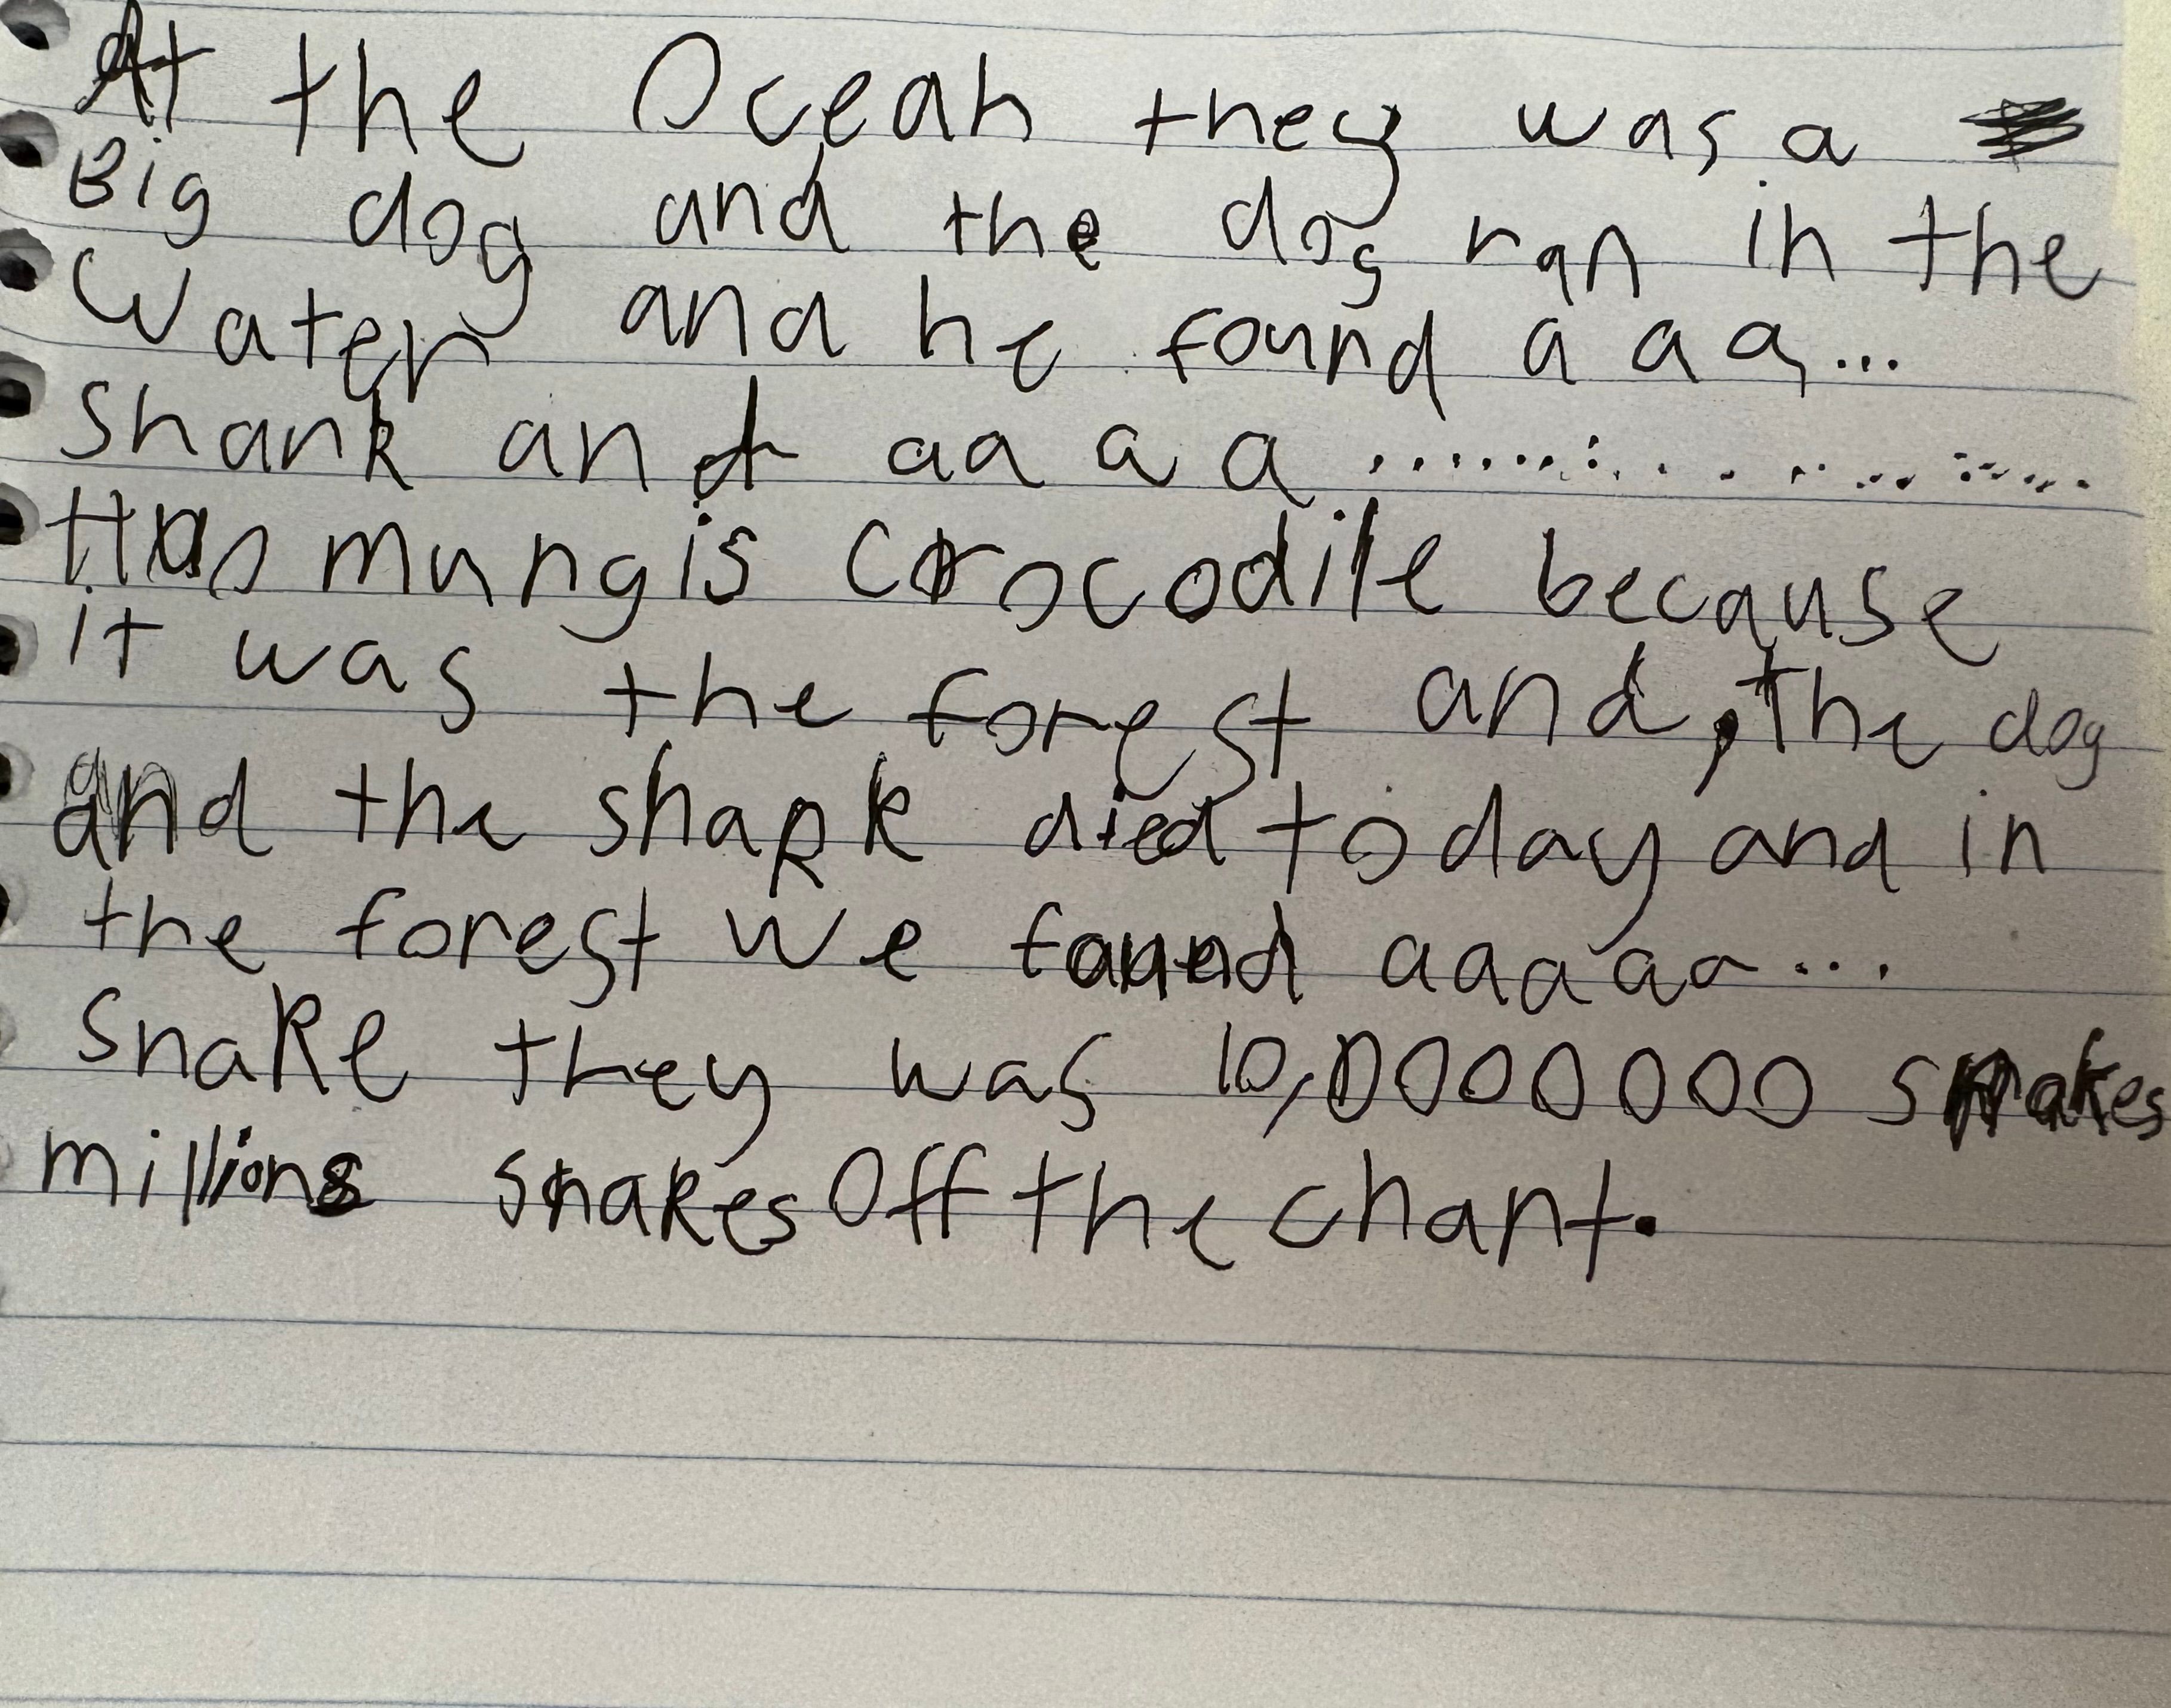 At the Ocean they was a
Big dog and the dog ran in the
Water and he found a a a...
Shark and aa a a ..............................
Huomungis Crocodile because
it was the forest and, the dog
and the shark died today and in
the forest we found aaaaa...
Snake they was 10,0000000 snakes
millions snakes Off the chart.